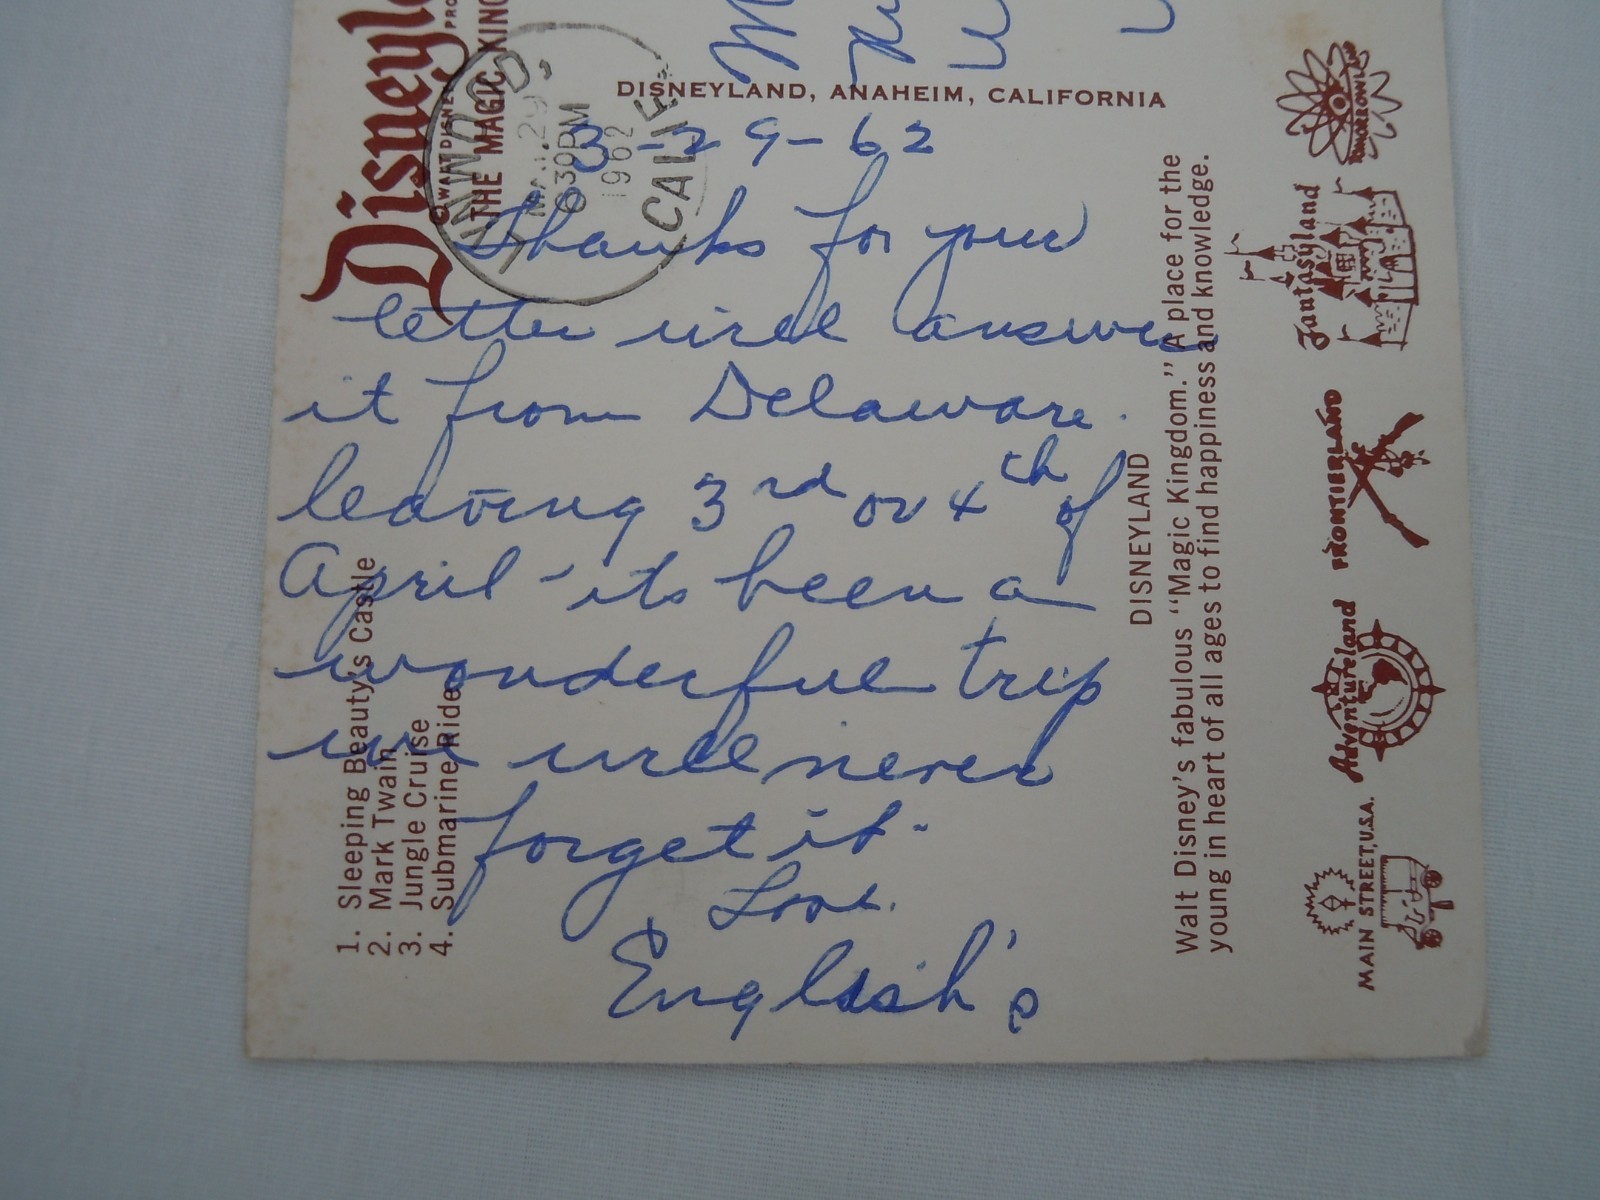 Disneyl
© WALT DISNEY PRO
THE MAGIC KING
LYNWOOD
MAR 29
630PM
1962
CALIF
DISNEYLAND, ANAHEIM, CALIFORNIA
3-29-62
Thanks for your
letter will answer
it from Delaware.
leaving 3rd or 4th of
April - its been a
wonderful trip
we will never
forget it -
Love.
English's
1. Sleeping Beauty's Castle
2. Mark Twain
3. Jungle Cruise
4. Submarine Ride
DISNEYLAND
Walt Disney's fabulous "Magic Kingdom." A place for the
young in heart of all ages to find happiness and knowledge.
MAIN STREET, U.S.A.
Adventureland
FRONTIERLAND
Fantasyland
TOMORROWLAND